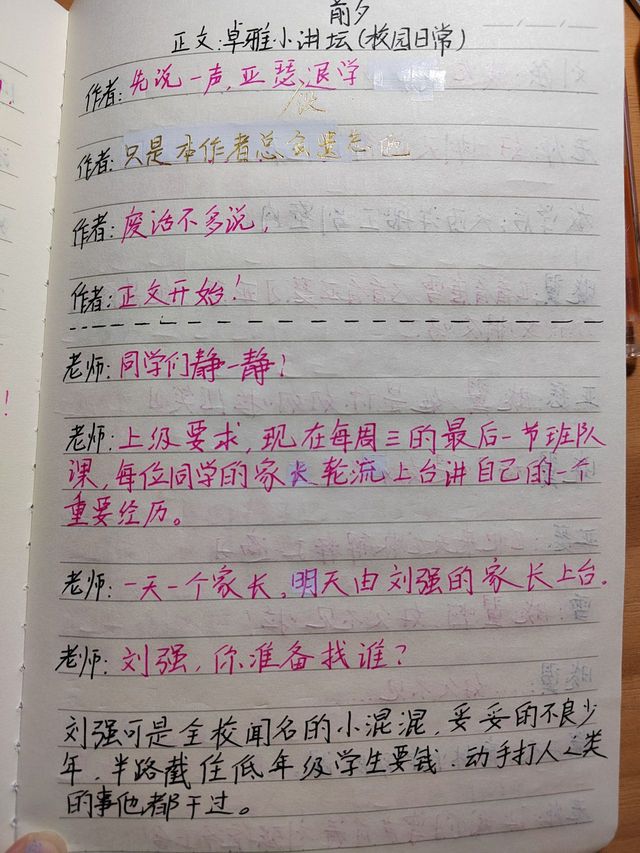 前夕
正文:卓雅小讲坛(校园日常)
作者:先说一声,亚瑟退学
作者:只是本作者总会遗忘他
作者:废话不多说,
作者:正文开始!
老师:同学们静一静!
老师:上级要求,现在每周三的最后一节班队
课,每位同学的家长轮流上台讲自己的一个
重要经历。
老师:一天一个家长,明天由刘强的家长上台.
老师:刘强,你准备找谁?
刘强可是全校闻名的小混混,妥妥的不良少
年,半路截住低年级学生要钱.动手打人之类
的事他都干过。